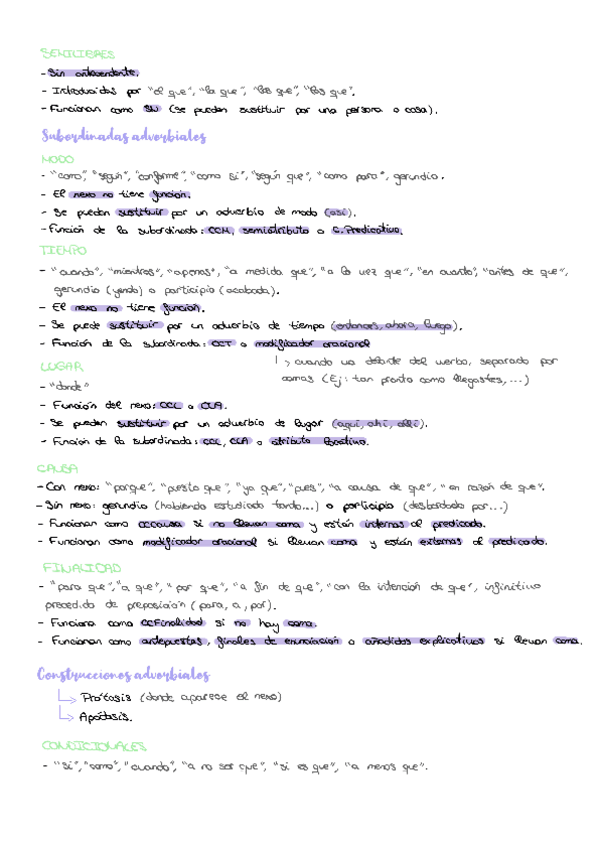 SEMILIBRES
- Sin antecedente.
- Introducidas por "el que", "la que", "las que", "los que".
- Funcionan como SN (se pueden sustituir por una persona o cosa).
Subordinadas adverbiales
MODO
- "como", "según", "conforme", "como si", "según que", "como para", gerundio.
- El nexo no tiene función.
- Se pueden sustituir por un adverbio de modo (así).
- Función de la subordinada: CCM, semiatributo o C.Predicativo.
TIEMPO
- "cuando", "mientras", "apenas", "a medida que", "a la vez que", "en cuanto", "antes de que",
gerundio (yendo) o participio (acabada).
- El nexo no tiene función.
- Se puede sustituir por un adverbio de tiempo (entonces, ahora, luego).
- Función de la subordinada: CCT o modificador oracional
↳ cuando va delante del verbo, separado por
comas (Ej: tan pronto como llegastes, ...)
LUGAR
- "donde"
- Función del nexo: CCL o CLA.
- Se pueden sustituir por un adverbio de lugar (aquí, ahí, allí).
- Función de la subordinada: CCL, CLA o atributo locativo.
CAUSA
- Con nexo: "porque", "puesto que", "ya que", "pues", "a causa de que", "en razón de que".
- Sin nexo: gerundio (habiendo estudiado tanto...) o participio (desbordado por...)
- Funcionan como CCCausa si no llevan coma y están internas al predicado.
- Funcionan como modificador oracional si llevan coma y están externas al predicado.
FINALIDAD
- "para que", "a que", "por que", "a fin de que", "con la intención de que", infinitivo
precedido de preposición (para, a, por).
- Funciona como CCFinalidad si no hay coma.
- Funcionan como antepuestas, finales de enunciación o añadidos explicativos si llevan coma.
Construcciones adverbiales
↳ Prótasis (donde aparece el nexo)
↳ Apódosis.
CONDICIONALES
- "si", "como", "cuando", "a no ser que", "si es que", "a menos que".